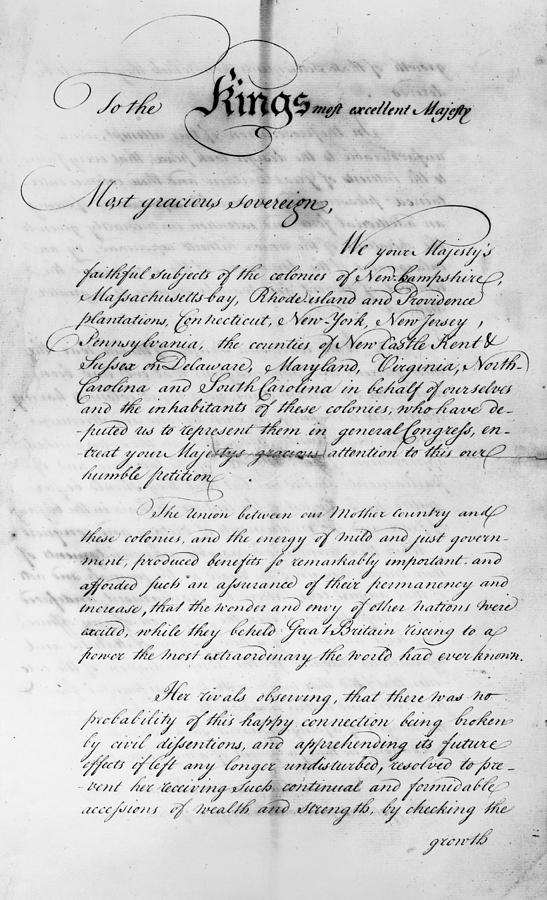 To the Kings most excellent Majesty
Most gracious sovereign,
We your Majesty's
faithful subjects of the colonies of New-hampshire,
Massachusetts-bay, Rhode island and Providence
plantations, Connecticut, New-York, New Jersey,
Pennsylvania, the counties of New Castle Kent &
Sussex on Delaware, Maryland, Virginia, North-
Carolina and South Carolina in behalf of ourselves
and the inhabitants of these colonies, who have de-
puted us to represent them in general Congress, en-
-treat your Majestys gracious attention to this our
humble petition.
The Union between our Mother Country and
these colonies, and the energy of mild and just govern-
ment, produced benefits so remarkably important and
afforded such an assurance of their permanency and
increase, that the wonder and envy of other nations were
excited, while they beheld Great Britain riseing to a
power the most extraordinary the world had ever known.
Her rivals observing, that there was no
probability of this happy connection being broken
by civil dissentions, and apprehending its future
effects if left any longer undisturbed, resolved to pre-
-vent her receiving such continual and formidable
accessions of wealth and strength, by checking the
growth